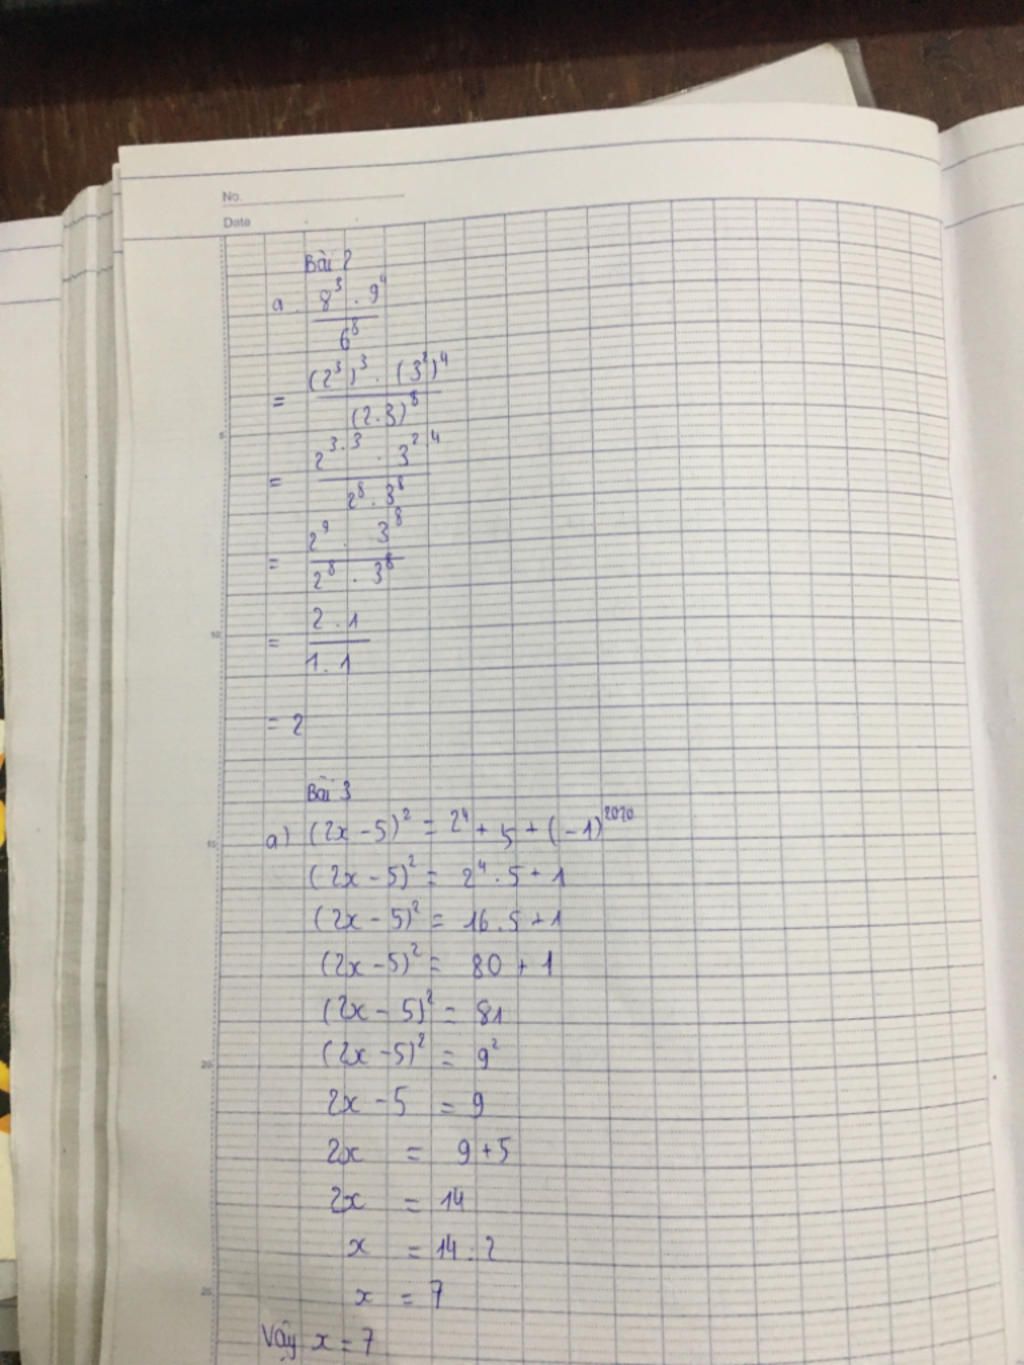 No.
Date
Bài 2
a. 8³ . 9⁴
6⁸
= (2³)³ . (3²)⁴
(2.3)⁸
= 2³·³ . 3² ⁴
2⁸ . 3⁸
= 2⁹ . 3⁸
2⁸ . 3⁸
= 2 . 1
1 . 1
= 2
Bài 3
a) (2x - 5)² = 2⁴ + 5 + (-1)²⁰²⁰
(2x - 5)² = 2⁴ . 5 + 1
(2x - 5)² = 16 . 5 + 1
(2x - 5)² = 80 + 1
(2x - 5)² = 81
(2x - 5)² = 9²
2x - 5 = 9
2x = 9 + 5
2x = 14
x = 14 : 2
x = 7
Vậy x = 7
5
10
15
20
25